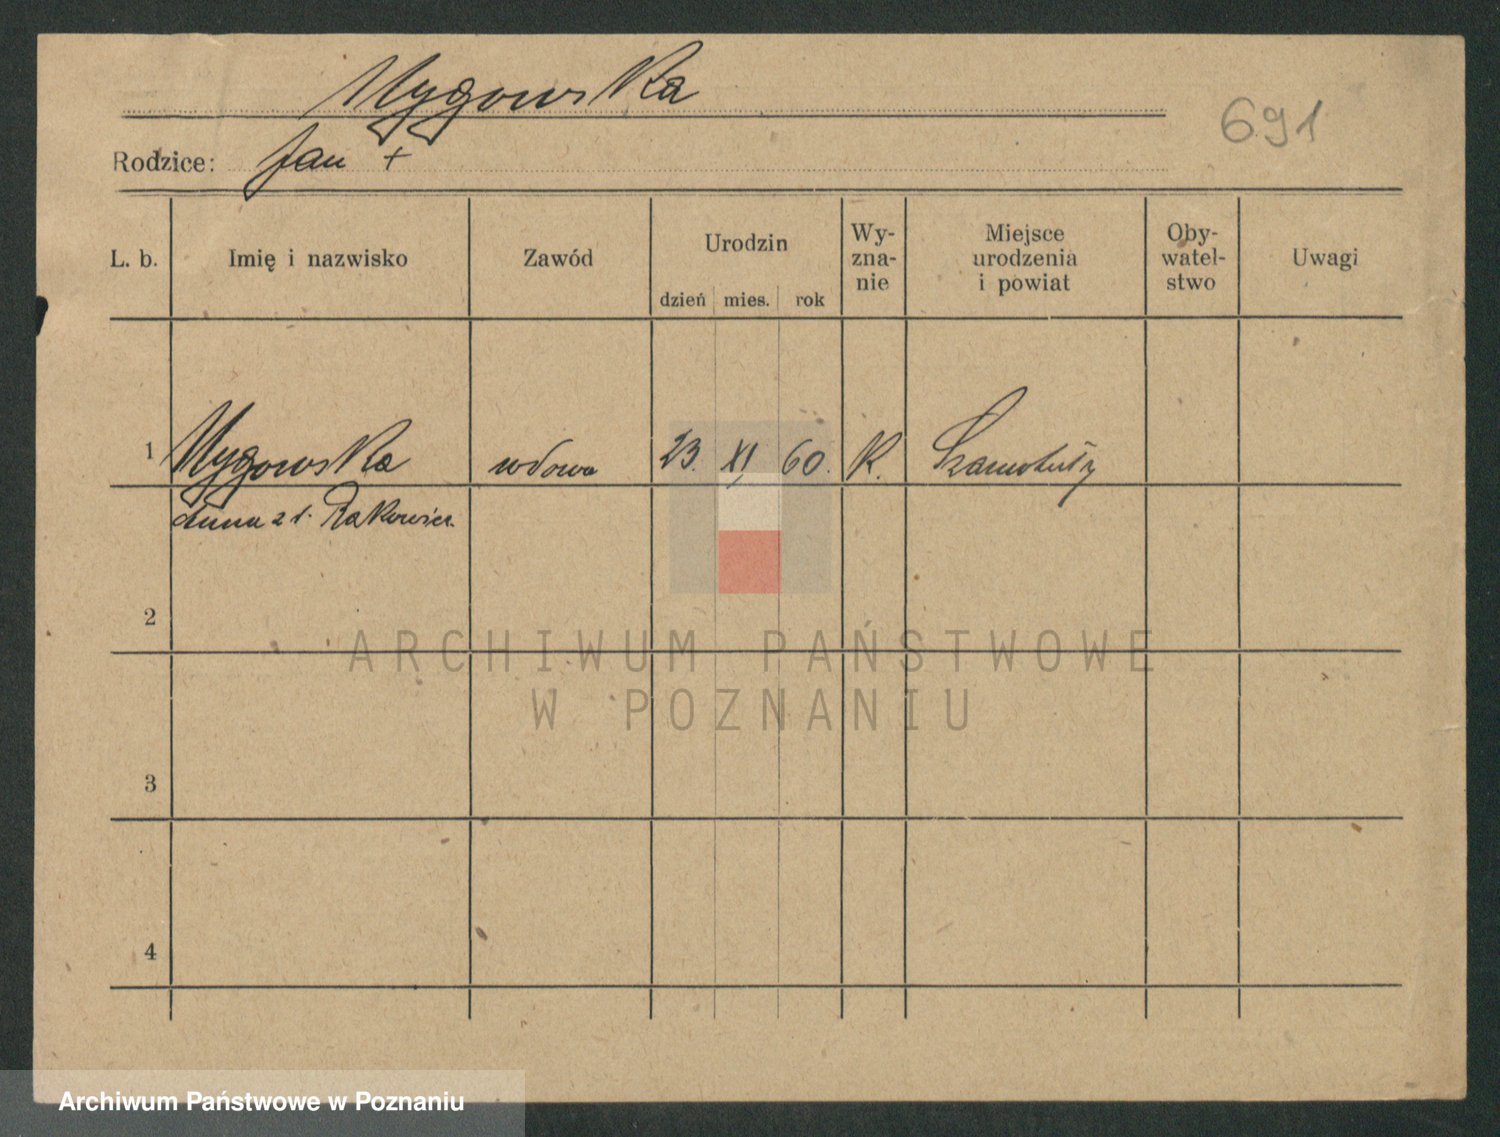 Mygowska
691
Rodzice: Jan +
L. b. Imię i nazwisko Zawód Urodzin dzień mies. rok Wy-zna-nie Miejsce urodzenia i powiat Oby-watel-stwo Uwagi
1 Mygowska wdowa 23. XI 60. K. Szamotuły
Anna z d. Rakowicz
2
ARCHIWUM PAŃSTWOWE
W POZNANIU
3
4
Archiwum Państwowe w Poznaniu